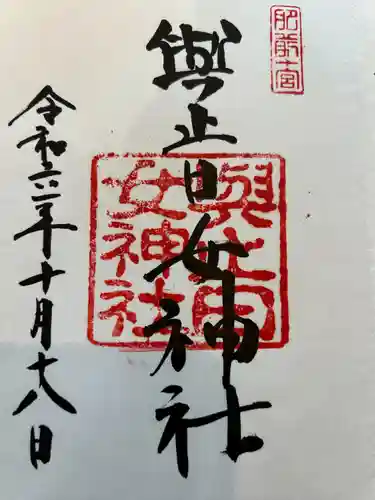 肥前一宮
與止日女神社
與止日
女神社
令和六年十月十八日